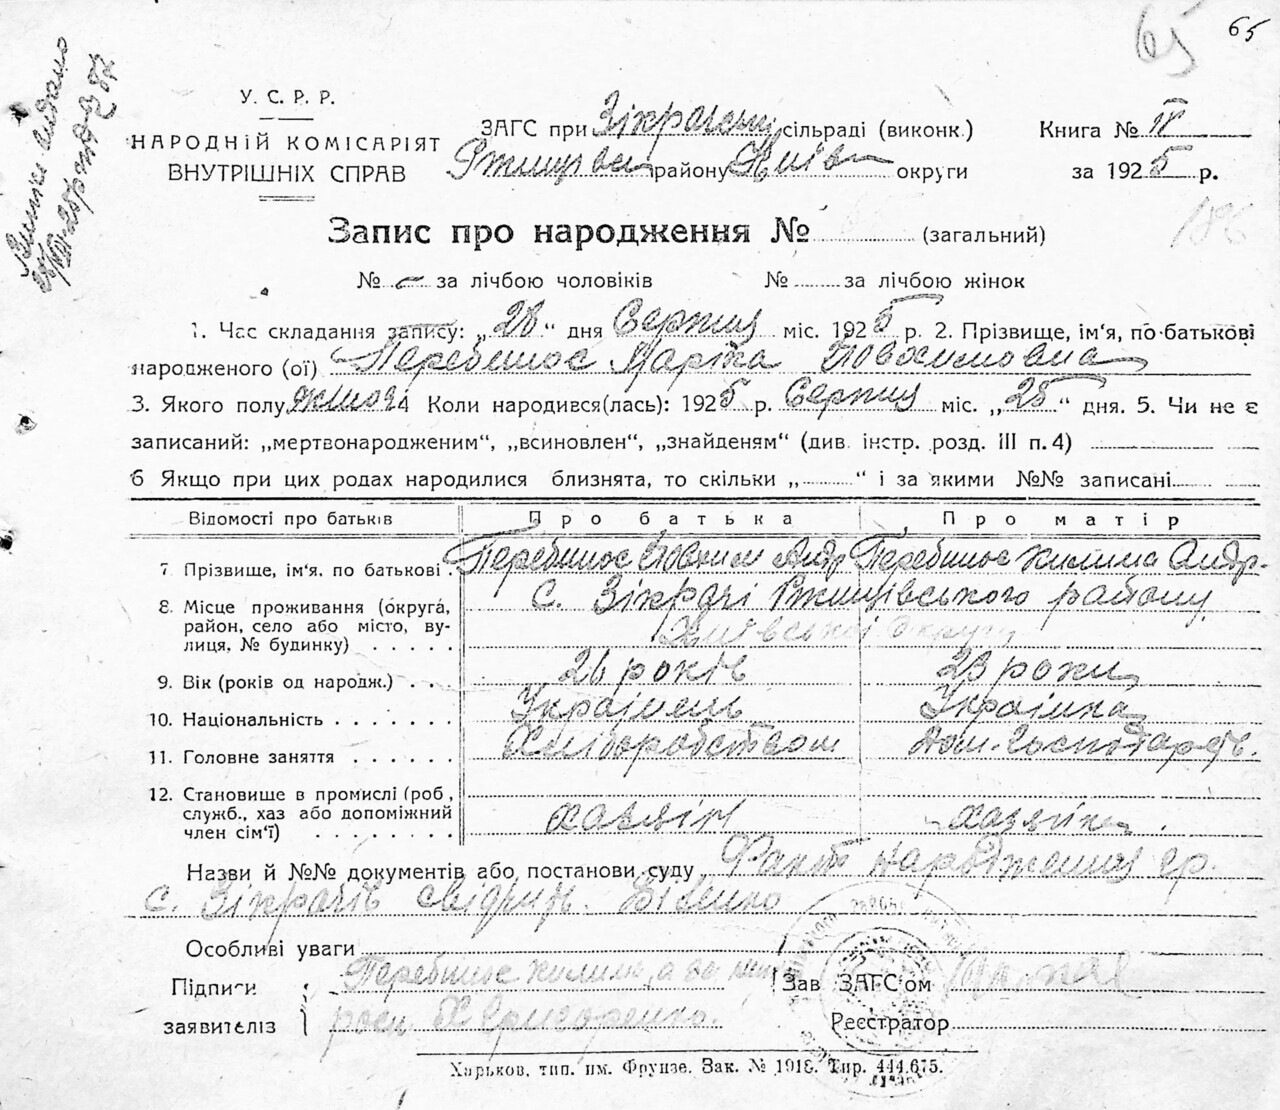 65 65
У. С. Р. Р.
НАРОДНІЙ КОМІСАРІЯТ
ВНУТРІШНІХ СПРАВ
ЗАГС при Зікрачені сільраді (виконк.)
Ржищівськ району Київ округи
Книга № ІІ
за 1925 р.
186
Запис про народження № (загальний)
№ за лічбою чоловіків № за лічбою жінок
1. Час складання запису: „28" дня Серпня міс. 1925 р. 2. Прізвище, ім'я, по-батькові
народженого (ої) Перебийніс Марія Йовхимовна
3. Якого полу жіноч 4 Коли народився(лась): 1925 р. Серпня міс. „25" дня. 5. Чи не є
записаний: „мертвонародженим", „всиновлен", „знайденям" (див. інстр. розд. III п. 4)
6 Якщо при цих родах народилися близнята, то скільки „ " і за якими №№ записані
Відомості про батьків Про батька Про матір
7. Прізвище, ім'я, по батькові. Перебийніс Йовхим Андр Перебийніс Килина Андр.
8. Місце проживання (округа, район, село або місто, вулиця, № будинку) С. Зікрачі Ржищівського району
Київської Округи
9. Вік (років од народж.) 26 років 23 роки
10. Національність Українець Українка
11. Головне заняття Хліборобством Дом. Господарств.
12. Становище в промислі (роб, служб., хаз або допоміжний член сім'ї) хазяїн хазяйка.
Назви й №№ документів або постанови суду Факт народження гр.
с. Зікрачів свідчить.
Особливі уваги
Підписи заявителіз Перебийніс Килина, а за
Зав ЗАГС'ом
Реєстратор
Харьков, тип. им. Фрунзе. Зак. № 1918. Тир. 444.675.